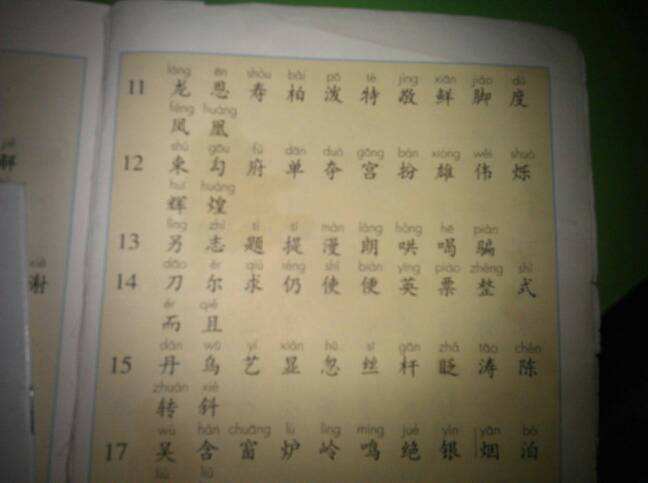 lóng ēn shòu bǎi pō tè jìng xiān jiǎo dù
11 龙 恩 寿 柏 泼 特 敬 鲜 脚 度
fèng huáng
凤 凰
shù gōu fǔ dān duó gōng bàn xióng wěi shuò
12 束 勾 府 单 夺 宫 扮 雄 伟 烁
huī huáng
辉 煌
lìng zhì tí tí màn lǎng hǒng hē piàn
13 另 志 题 提 漫 朗 哄 喝 骗
dāo ěr qiú réng shǐ biàn yīng piào zhěng shì
14 刀 尔 求 仍 使 便 英 票 整 式
ér qiě
而 且
dān wū yì xiǎn hū sī gān zhǎ tāo chén
15 丹 乌 艺 显 忽 丝 杆 眨 涛 陈
zhuǎn xié
转 斜
wú hán chuāng lú lǐng míng jué yín yān bó
17 吴 含 窗 炉 岭 鸣 绝 银 烟 泊
liú liǔ
解
xiè
谢